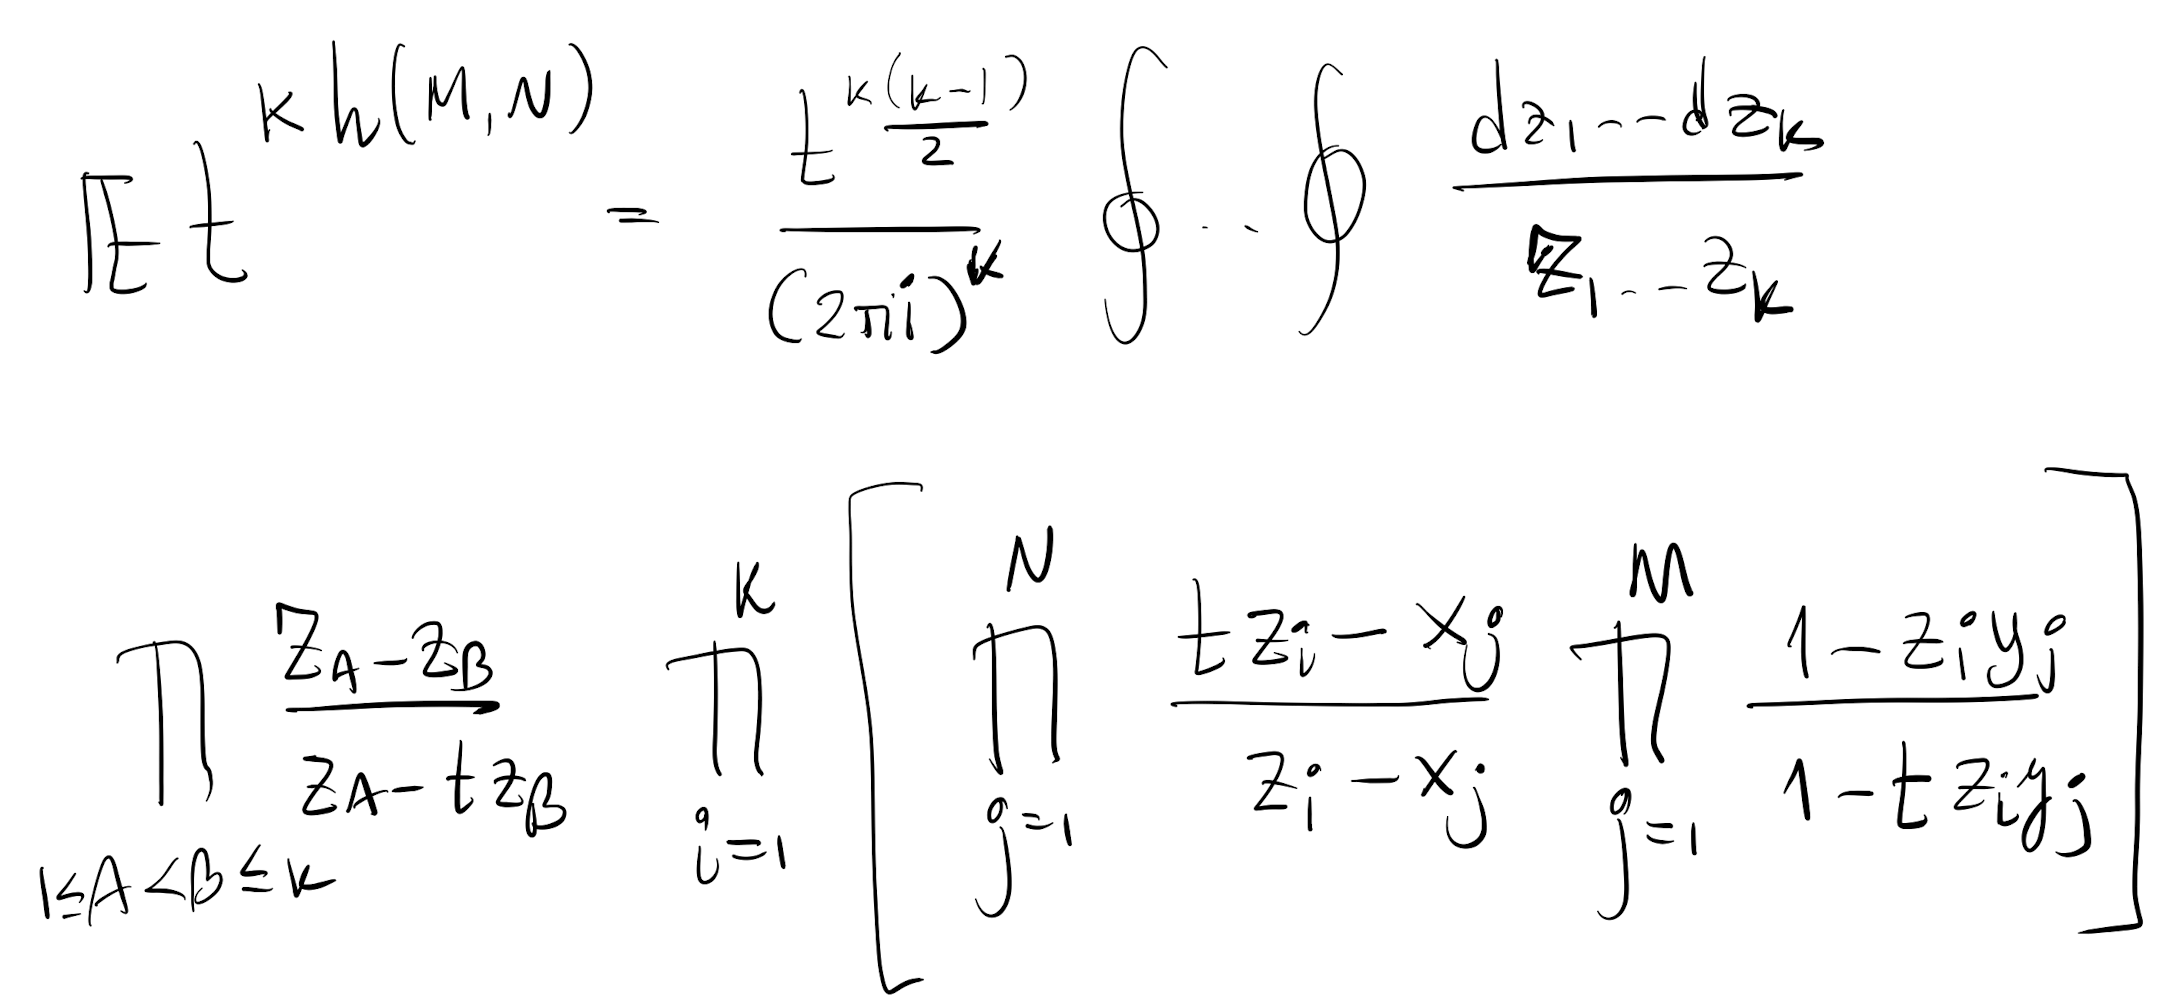 $\mathbb{E}\, t^{k h(M,N)} = \frac{t^{\frac{k(k-1)}{2}}}{(2\pi i)^k} \oint \cdots \oint \frac{dz_1 \cdots dz_k}{z_1 \cdots z_k}$
$\prod_{1 \le A < B \le k} \frac{z_A - z_B}{z_A - t z_B} \prod_{i=1}^{k} \left[ \prod_{j=1}^{N} \frac{t z_i - x_j}{z_i - x_j} \prod_{j=1}^{M} \frac{1 - z_i y_j}{1 - t z_i y_j} \right]$